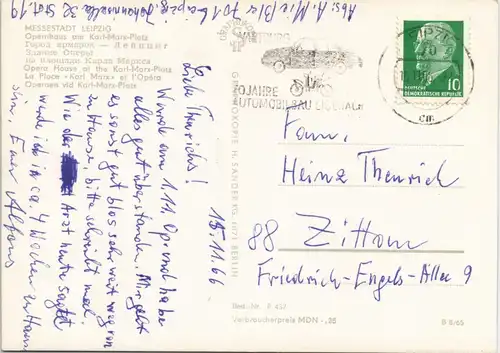 Abs. A.
701 Leipzig, Johannisallee 32 Stat. 19
MESSESTADT LEIPZIG
Opernhaus am Karl-Marx-Platz
Город ярмарок — Лейпциг
Здание Оперы
на площади Карла Маркса
Opera House at the Karl-Marx-Platz
La Place «Karl Marx» et l'Opéra
Opernes vid Karl-Marx-Platz
Liebe Thenrichs! 15.11.66
Wurde am 1.11. Op. und habe
alles gut überstanden. Mir geht
es sonst gut blos sehr weit weg von
zu Hause, bitte schreibt mal.
Wie der Arzt heute sagte
werde ich in ca. 4 Wochen zu Hause
sein. Euer Alfons
WARTBURG
JAHRE
AUTOMOBILBAU EISENACH
LEIPZIG
DEUTSCHE
DEMOKRATISCHE REPUBLIK
10
cm
H. SANDER KG, 1071 BERLIN
Fam.
Heinz Thenrich
88 Zittau
Friedrich-Engels-Allee 9
Best.-Nr. F 457
Verbraucherpreis MDN -,20